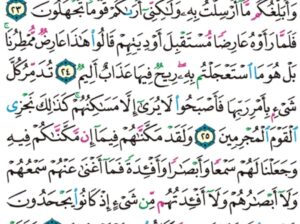 وَأُبَلِّغُكُم مَّآ أُرْسِلْتُ بِهِۦ وَلَٰكِنِّىٓ أَرَىٰكُمْ قَوْمًا تَجْهَلُونَ ٢٣
فَلَمَّا رَأَوْهُ عَارِضًا مُّسْتَقْبِلَ أَوْدِيَتِهِمْ قَالُوا۟ هَٰذَا عَارِضٌ مُّمْطِرُنَا ۚ
بَلْ هُوَ مَا ٱسْتَعْجَلْتُم بِهِۦ ۖ رِيحٌ فِيهَا عَذَابٌ أَلِيمٌ ٢٤ تُدَمِّرُ كُلَّ
شَىْءٍۭ بِأَمْرِ رَبِّهَا فَأَصْبَحُوا۟ لَا يُرَىٰٓ إِلَّا مَسَٰكِنُهُمْ ۚ كَذَٰلِكَ نَجْزِى
ٱلْقَوْمَ ٱلْمُجْرِمِينَ ٢٥ وَلَقَدْ مَكَّنَّٰهُمْ فِيمَآ إِن مَّكَّنَّٰكُمْ فِيهِ
وَجَعَلْنَا لَهُمْ سَمْعًا وَأَبْصَٰرًا وَأَفْـِٔدَةً فَمَآ أَغْنَىٰ عَنْهُمْ سَمْعُهُمْ
وَلَآ أَبْصَٰرُهُمْ وَلَآ أَفْـِٔدَتُهُم مِّن شَىْءٍ إِذْ كَانُوا۟ يَجْحَدُونَ